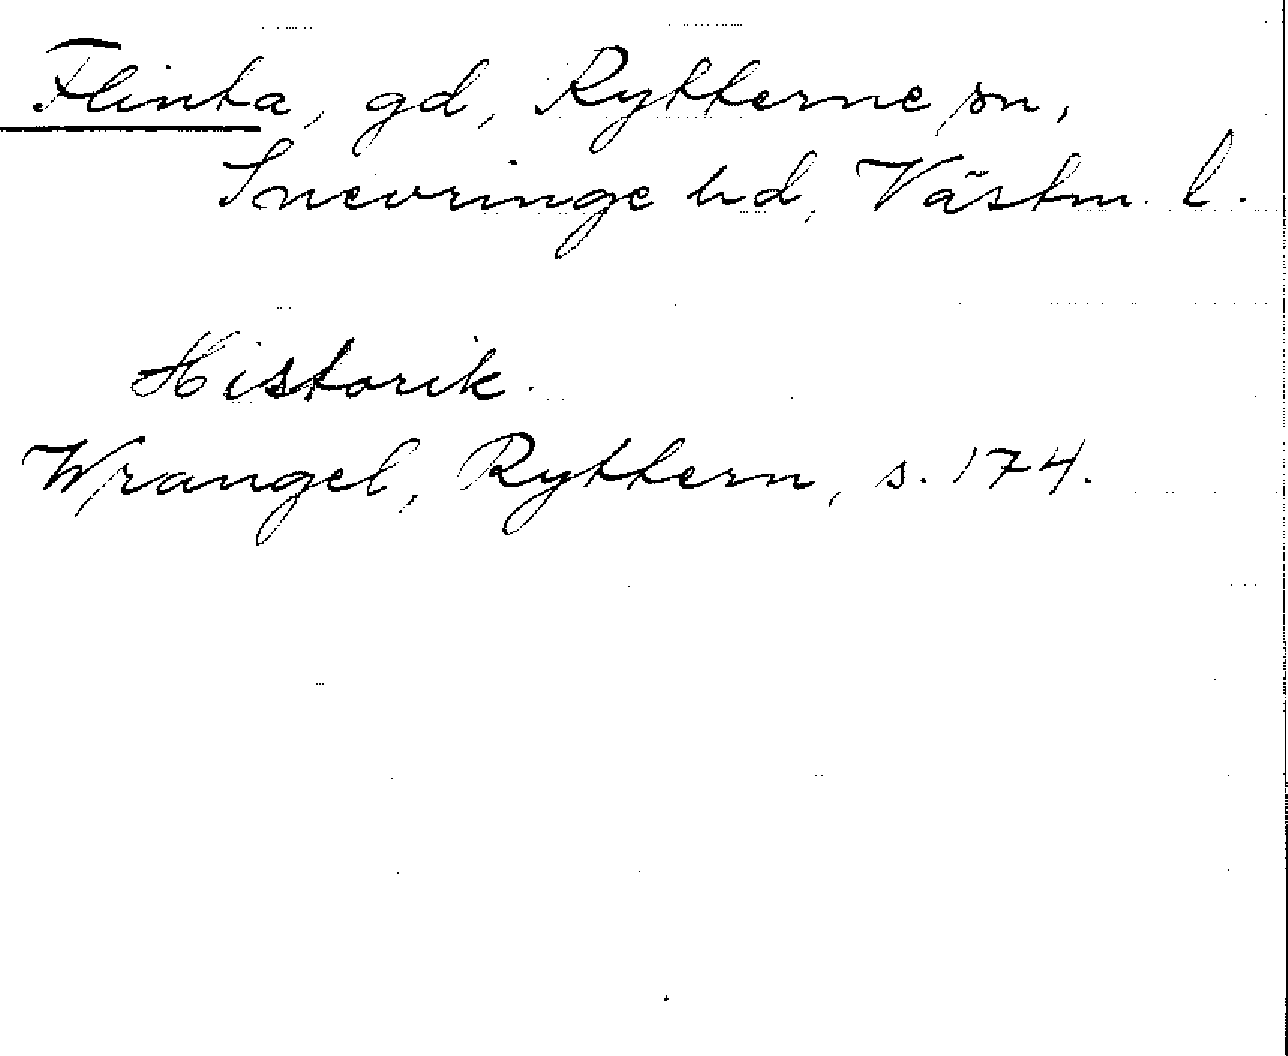 Flinta, gd, Rytterne sn,
Snevringe hd, Västm. l.
Historik.
Wrangel, Ryttern, s. 174.